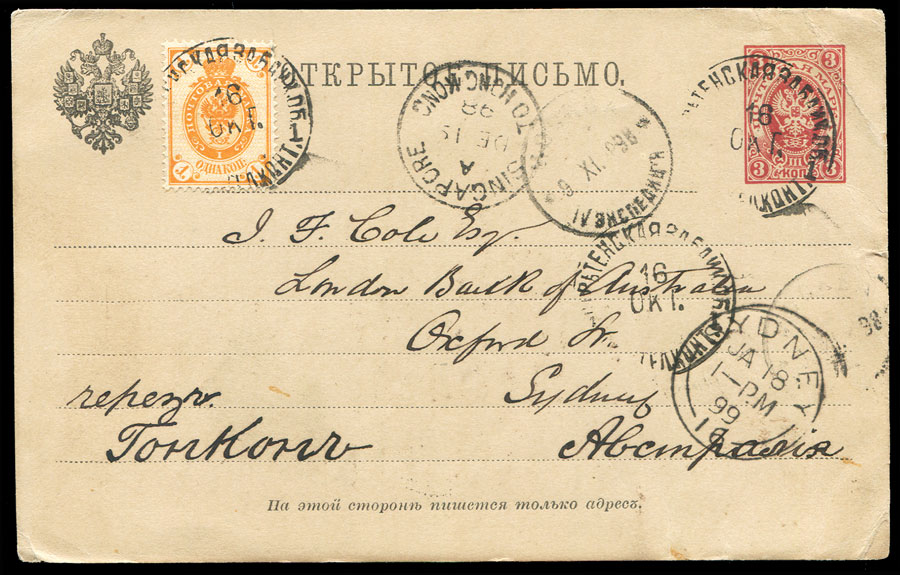 ОТКРЫТОЕ ПИСЬМО.
16
ОКТ.
1
ОДНА КОП.
1
SINGAPORE TO HONG KONG
A
DE 15
98
9 XI 98
3 3
18
ОКТ.
III
3 КОП. 3
J. F. Cole Esq.
London Bank of Australia
16
ОКТ.
Oxford St.
98
SYDNEY
JA 18
1-PM
99
Sydney
черезъ
Гонконгъ
Австралія
На этой сторонѣ пишется только адресъ.